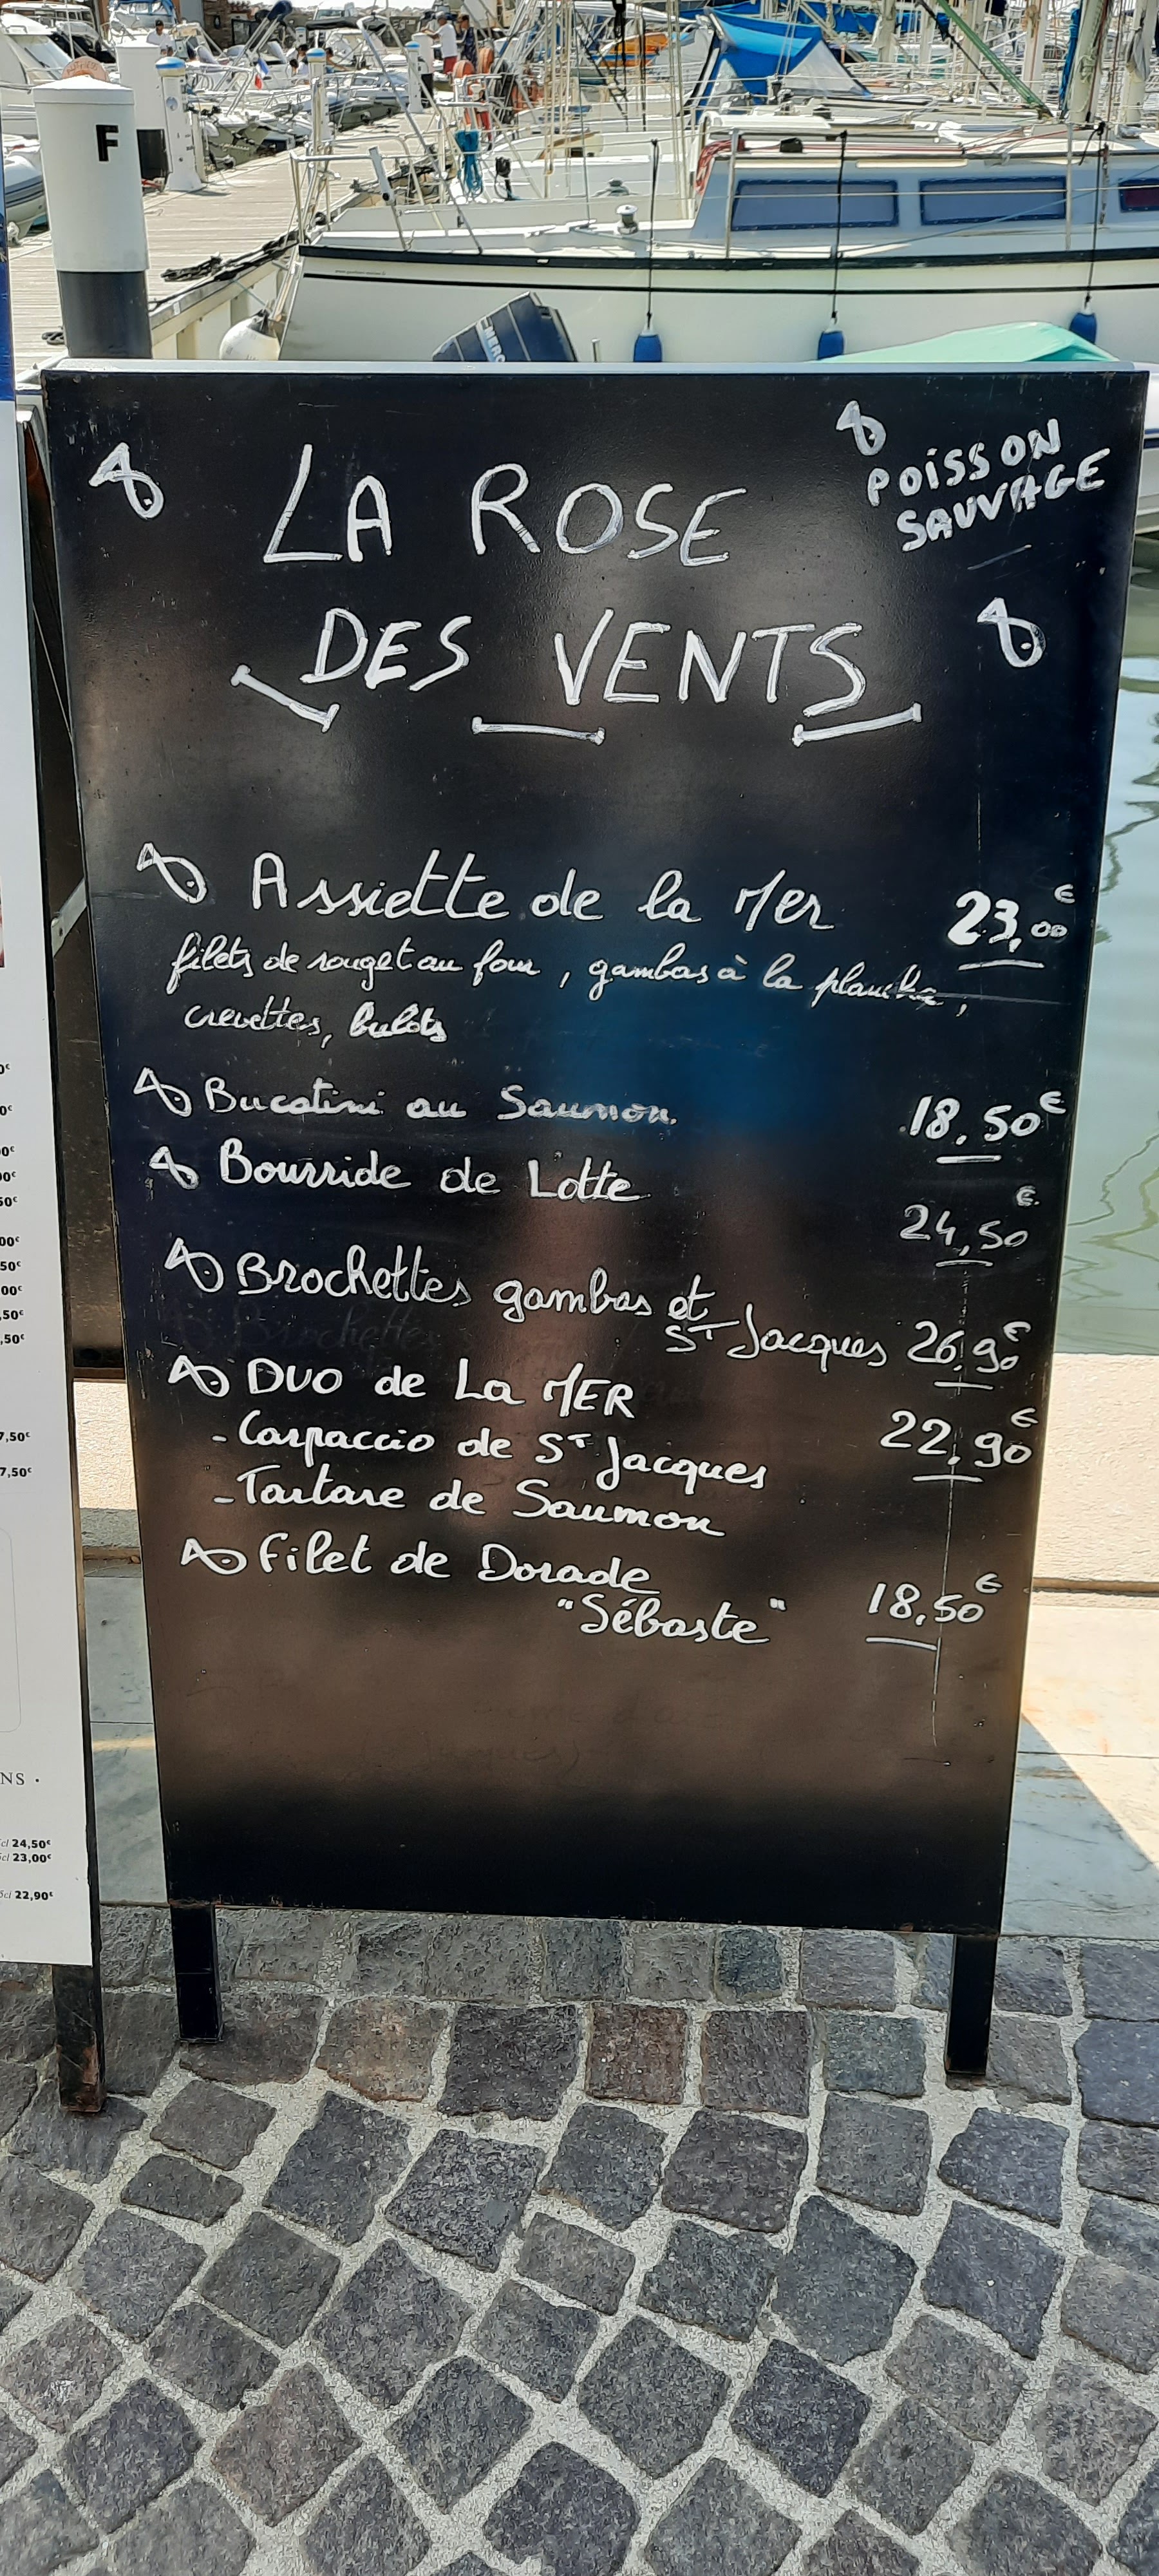 F
MERC
LA ROSE
DES VENTS
POISSON
SAUVAGE
Assiette de la Mer 23,00€
filets de rouget au four, gambas à la plancha,
crevettes, bulots
Bucatini au Saumon 18.50€
Bourride de Lotte 24,50€
Brochettes gambas et
ST Jacques 26.90€
DUO de La MER 22.90€
- Carpaccio de ST Jacques
- Tartare de Saumon
Filet de Dorade
"Sébaste" 18,50€
7,50€
7,50€
NS •
cl 24,50€
cl 23,00€
5cl 22,90€